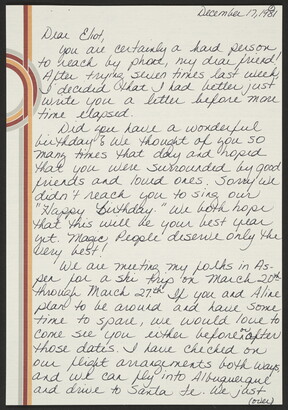 December 17, 1981
Dear Eliot,
You are certainly a hard person
to reach by phone, my dear friend!
After trying seven times last week,
I decided that I had better just
write you a letter before more
time elapsed.
Did you have a wonderful
birthday? We thought of you so
many times that day and hoped
that you were surrounded by good
friends and loved ones. Sorry we
didn't reach you to sing our
"Happy Birthday." We both hope
that this will be your best year
yet. Magic People deserve only the
very best!
We are meeting my folks in As-
pen for a ski trip on March 20th
through March 27th. If you and Aline
plan to be around and have some
time to spare, we would love to
come see you either before or after
those dates. I have checked on
our flight arrangements both ways
and we can fly into Albuquerque
and drive to Santa Fe. We just
(over)